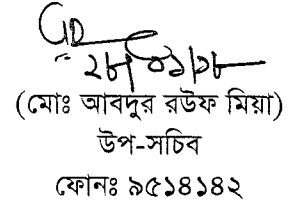 ২৮/০১/১৮
(মোঃ আবদুর রউফ মিয়া)
উপ-সচিব
ফোনঃ ৯৫১৪১৪২